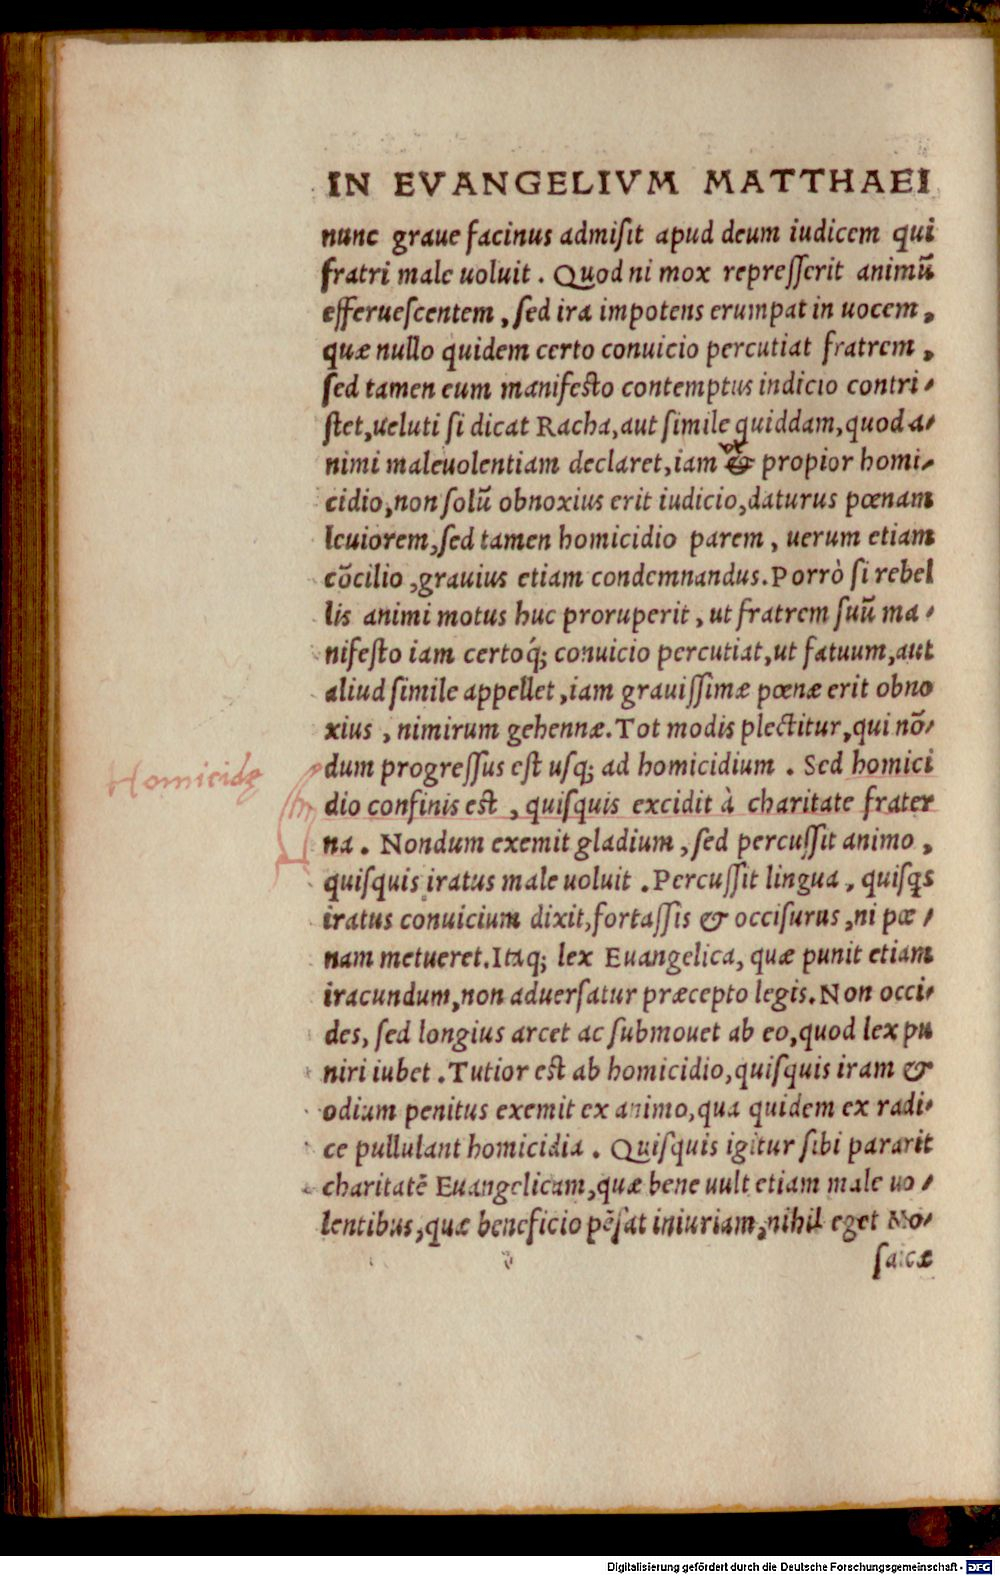 IN EVANGELIVM MATTHAEI
nunc graue facinus admiſit apud deum iudicem qui
fratri male uoluit. Quod ni mox repreſſerit animū
efferueſcentem, ſed ira impotens erumpat in uocem,
quæ nullo quidem certo conuicio percutiat fratrem,
ſed tamen eum manifeſto contemptus indicio contri⸗
ſtet, ueluti ſi dicat Racha, aut ſimile quiddam, quod a⸗
nimi maleuolentiam declaret, iam ut propior homi⸗
cidio, non ſolū obnoxius erit iudicio, daturus pœnam
leuiorem, ſed tamen homicidio parem, uerum etiam
cōcilio, grauius etiam condemnandus. Porrò ſi rebel
lis animi motus huc proruperit, ut fratrem ſuū ma⸗
nifeſto iam certoq́; conuicio percutiat, ut fatuum, aut
aliud ſimile appellet, iam grauiſſimæ pœnæ erit obno
xius, nimirum gehennæ. Tot modis plectitur, qui nō⸗
Homicidę
dum progreſſus eſt uſq; ad homicidium. Sed homici
dio confinis eſt, quiſquis excidit à charitate frater
na. Nondum exemit gladium, ſed percuſſit animo,
quiſquis iratus male uoluit. Percuſſit lingua, quiſqs
iratus conuicium dixit, fortaſſis & occiſurus, ni pœ⸗
nam metueret. Itaq; lex Euangelica, quæ punit etiam
iracundum, non aduerſatur præcepto legis. Non occi⸗
des, ſed longius arcet ac ſubmouet ab eo, quod lex pu
niri iubet. Tutior eſt ab homicidio, quiſquis iram &
odium penitus exemit ex animo, qua quidem ex radi⸗
ce pullulant homicidia. Quiſquis igitur ſibi pararit
charitatē Euangelicam, quæ bene uult etiam male uo⸗
lentibus, quæ beneficio pēſat iniuriam, nihil eget Mo⸗
ſaicæ
Digitalisierung gefördert durch die Deutsche Forschungsgemeinschaft - DFG